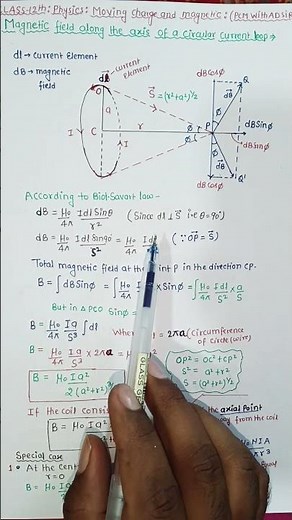 CLASS-12th: Physics: Moving charge and magnetic: (PCM WITH AD SIR
Magnetic field along the axis of a circular current loop→
dl → current Element
dB → magnetic
field
current
Element
dl
O
a
C
r
I
I
S⃗=(r²+a²)^1/2
P
Φ
Φ
dBcosΦ
Q
dB
dBsinΦ
dBsinΦ
dB
Q'
dBcosΦ
According to Biot-Savart law -
dB = μ₀/4π Idl Sinθ/r² (Since dl ⊥ S⃗ i.e θ=90°)
dB = μ₀/4π Idl Sin90°/S² = μ₀/4π Idl (∵ OP = S⃗)
Total magnetic field at the point P in the direction CP.
B = ∫dB SinΦ = ∫ μ₀/4π × SinΦ = ∫ μ₀/4π Idl/S² × a/S
But in △PCO
B = μ₀/4π Ia/S³ ∫dl = 2πa (circumference
of circle (wire)
B = μ₀/4π Ia/S³ × 2πa =
OP² = OC² + CP²
S² = a² + r²
S = (a²+r²)^1/2
B = μ₀Ia²/2(a²+r²)
If the coil the axial Point
away from the coil
B = μ₀NIa²
Special case
1• At the
r=0
B = μ₀